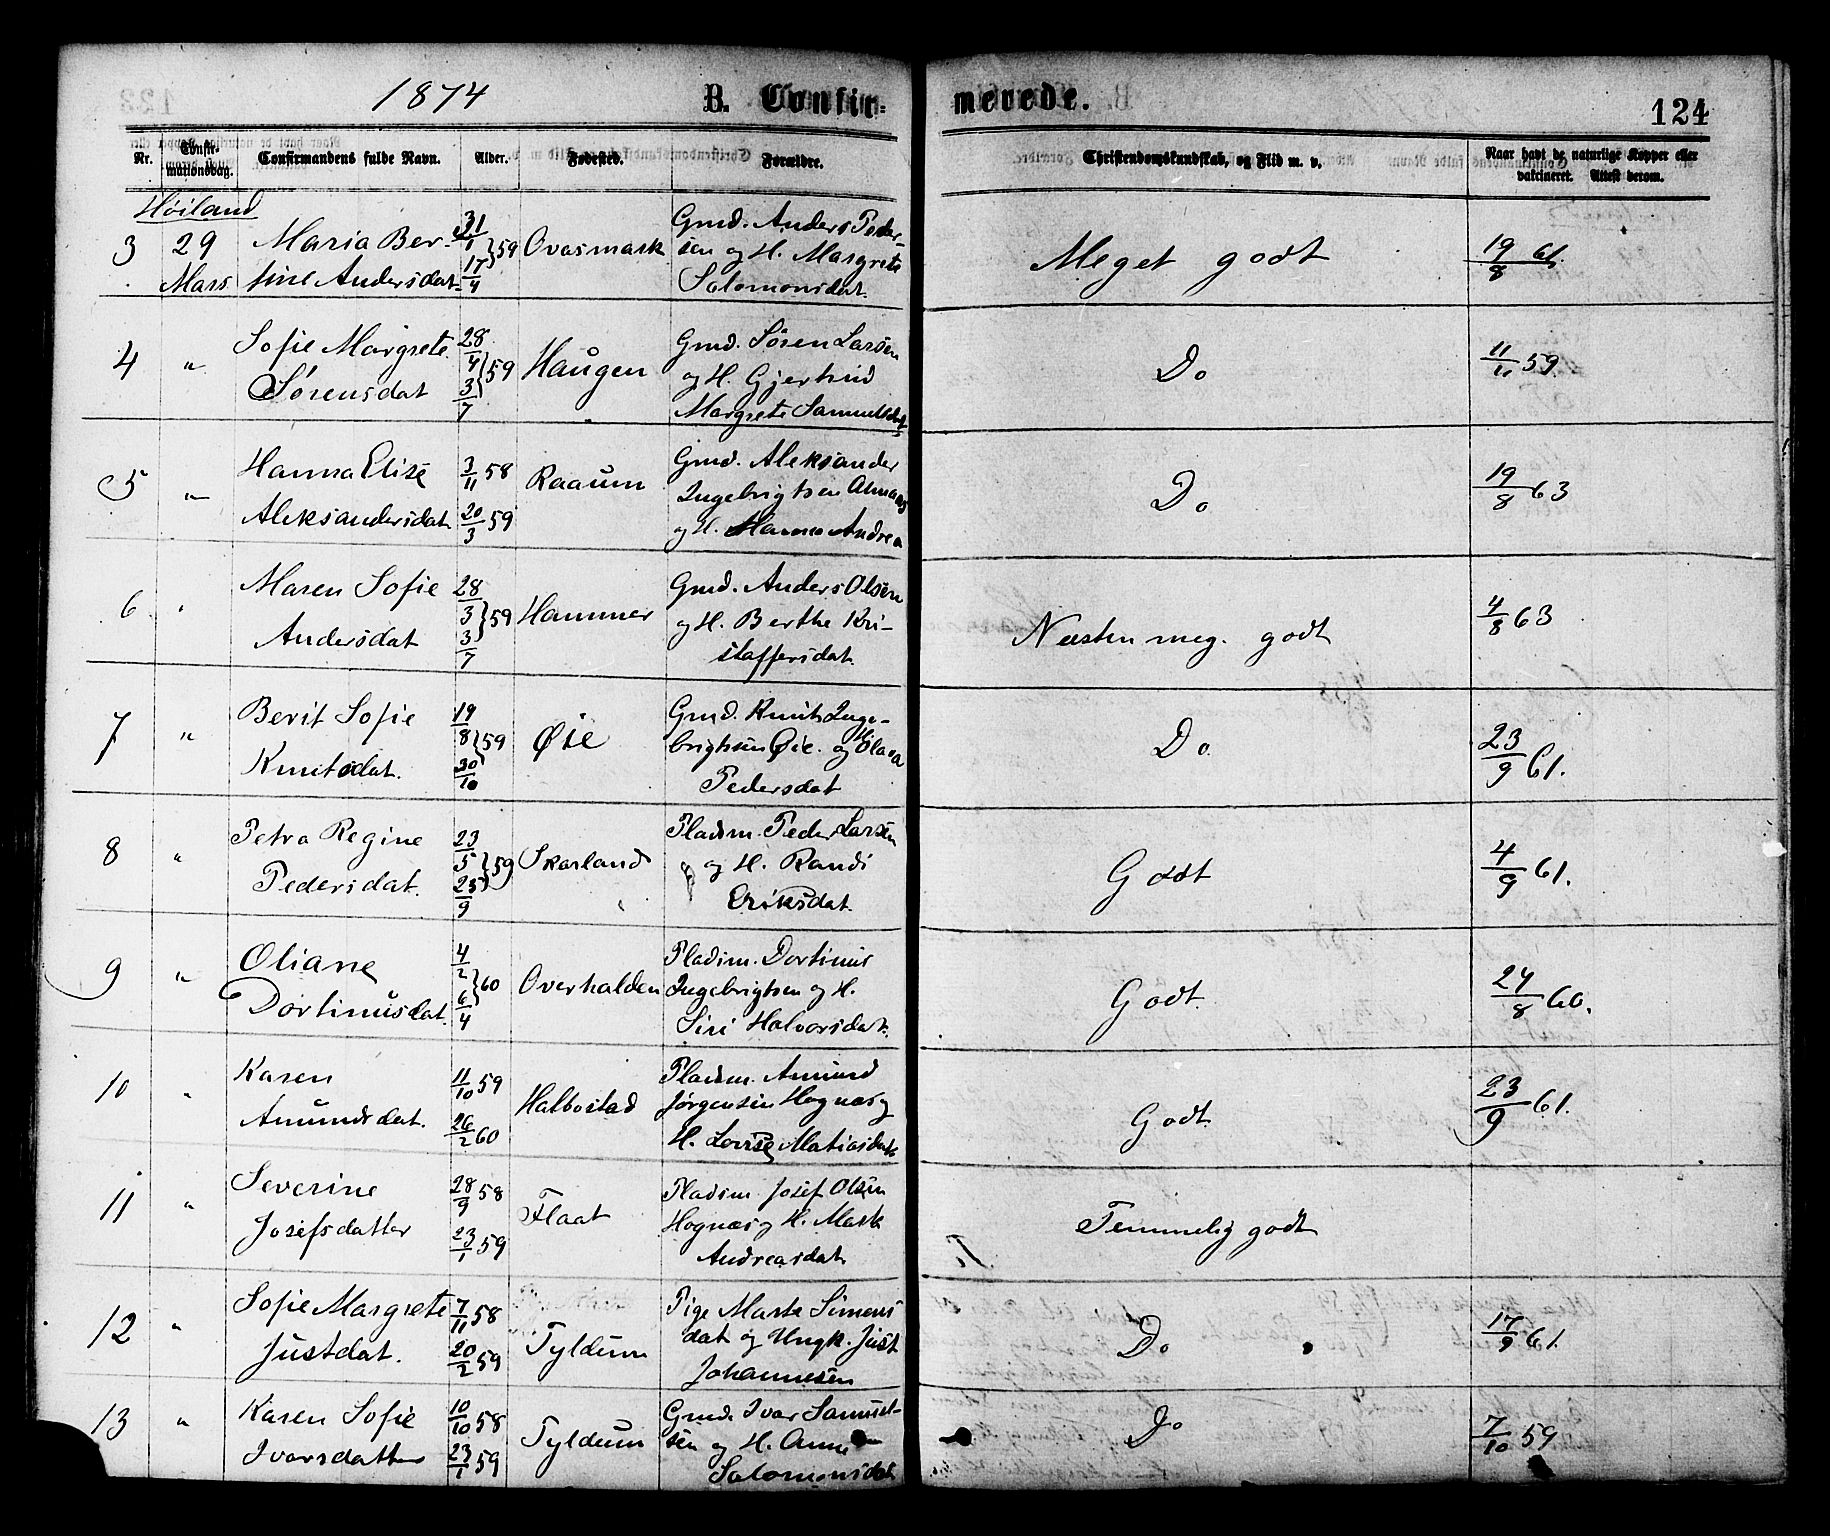 1874 B. Confirmerede. 124
Nr. Confirmationsdag. Confirmandens fulde Navn. Alder. Fødested. Forældre. Christendomskundskab, og Flid m. v. Naar havt de naturlige Kopper eller vakcineret. Attest derom.
Høiland
3 29 Mars Maria Ber-
tine Andersdat. 31/1 17/4 }59 Ovasmark Gmd. Anders Peder-
sen og H. Margrete
Salomonsdat. Meget godt 19/8 61.
4 " Sofie Margrete
Sørensdat 28/4 3/7 }59 Haugen Gmd. Søren Larsen
og H. Gjertrud
Margrete Samuelsdat Do 59.
5 " Hanna Elise
Aleksandersdat 3/11 58 20/3 59 Raaum Gmd. Aleksander
Ingebrigtsen
og H. Andrea Do 19/8 63
6 " Maren Sofie
Andersdat 28/3 3/7 }59 Hammer Gmd. Anders Olsen
og H. Berthe Kri-
stoffersdat. Næsten meg. godt 4/8 63
7 " Berit Sofie
Knutsdat. 19/8 30/10 }59 Øie Gmd. Knut Inge-
brigtsen Øie. og H. Olava
Pedersdat Do 23/9 61.
8 " Petra Regine
Pedersdat. 23/5 25/9 }59 Skarland Pladsm. Peder Larsen
og H. Randi
Eriksdat. Godt 4/9 61.
9 " Oliane
Dortinusdat. 4/2 6/4 }60 Overhalden Pladsm. Dortinus
Ingebrigtsen og H.
Siri Halvorsdat. Godt. 24/8 60.
10 " Karen
Amundsdat. 11/10 59 26/2 60 Halbostad Pladsm. Amund
Jørgensen Hognæs og
H. Lovise Matiasdat Godt. 23/9 61.
11 " Severine
Josefsdatter 28/9 58 23/1 59 Flaat Pladsm. Josef Olsen
Hognæs og H. Marta
Andreasdat. Temmelig godt
12 " Sofie Margrete
Justdat. 7/11 58 20/2 59 Tyldum Pige Marta Simens
dat og Ungk. Just
Johannesen Do 17/9 61.
13 " Karen Sofie
Ivarsdatter 10/10 58 23/1 59 Tyldum Gmd. Ivar Samuel-
sen og H. Anne
Salomonsdat Do 7/10 59